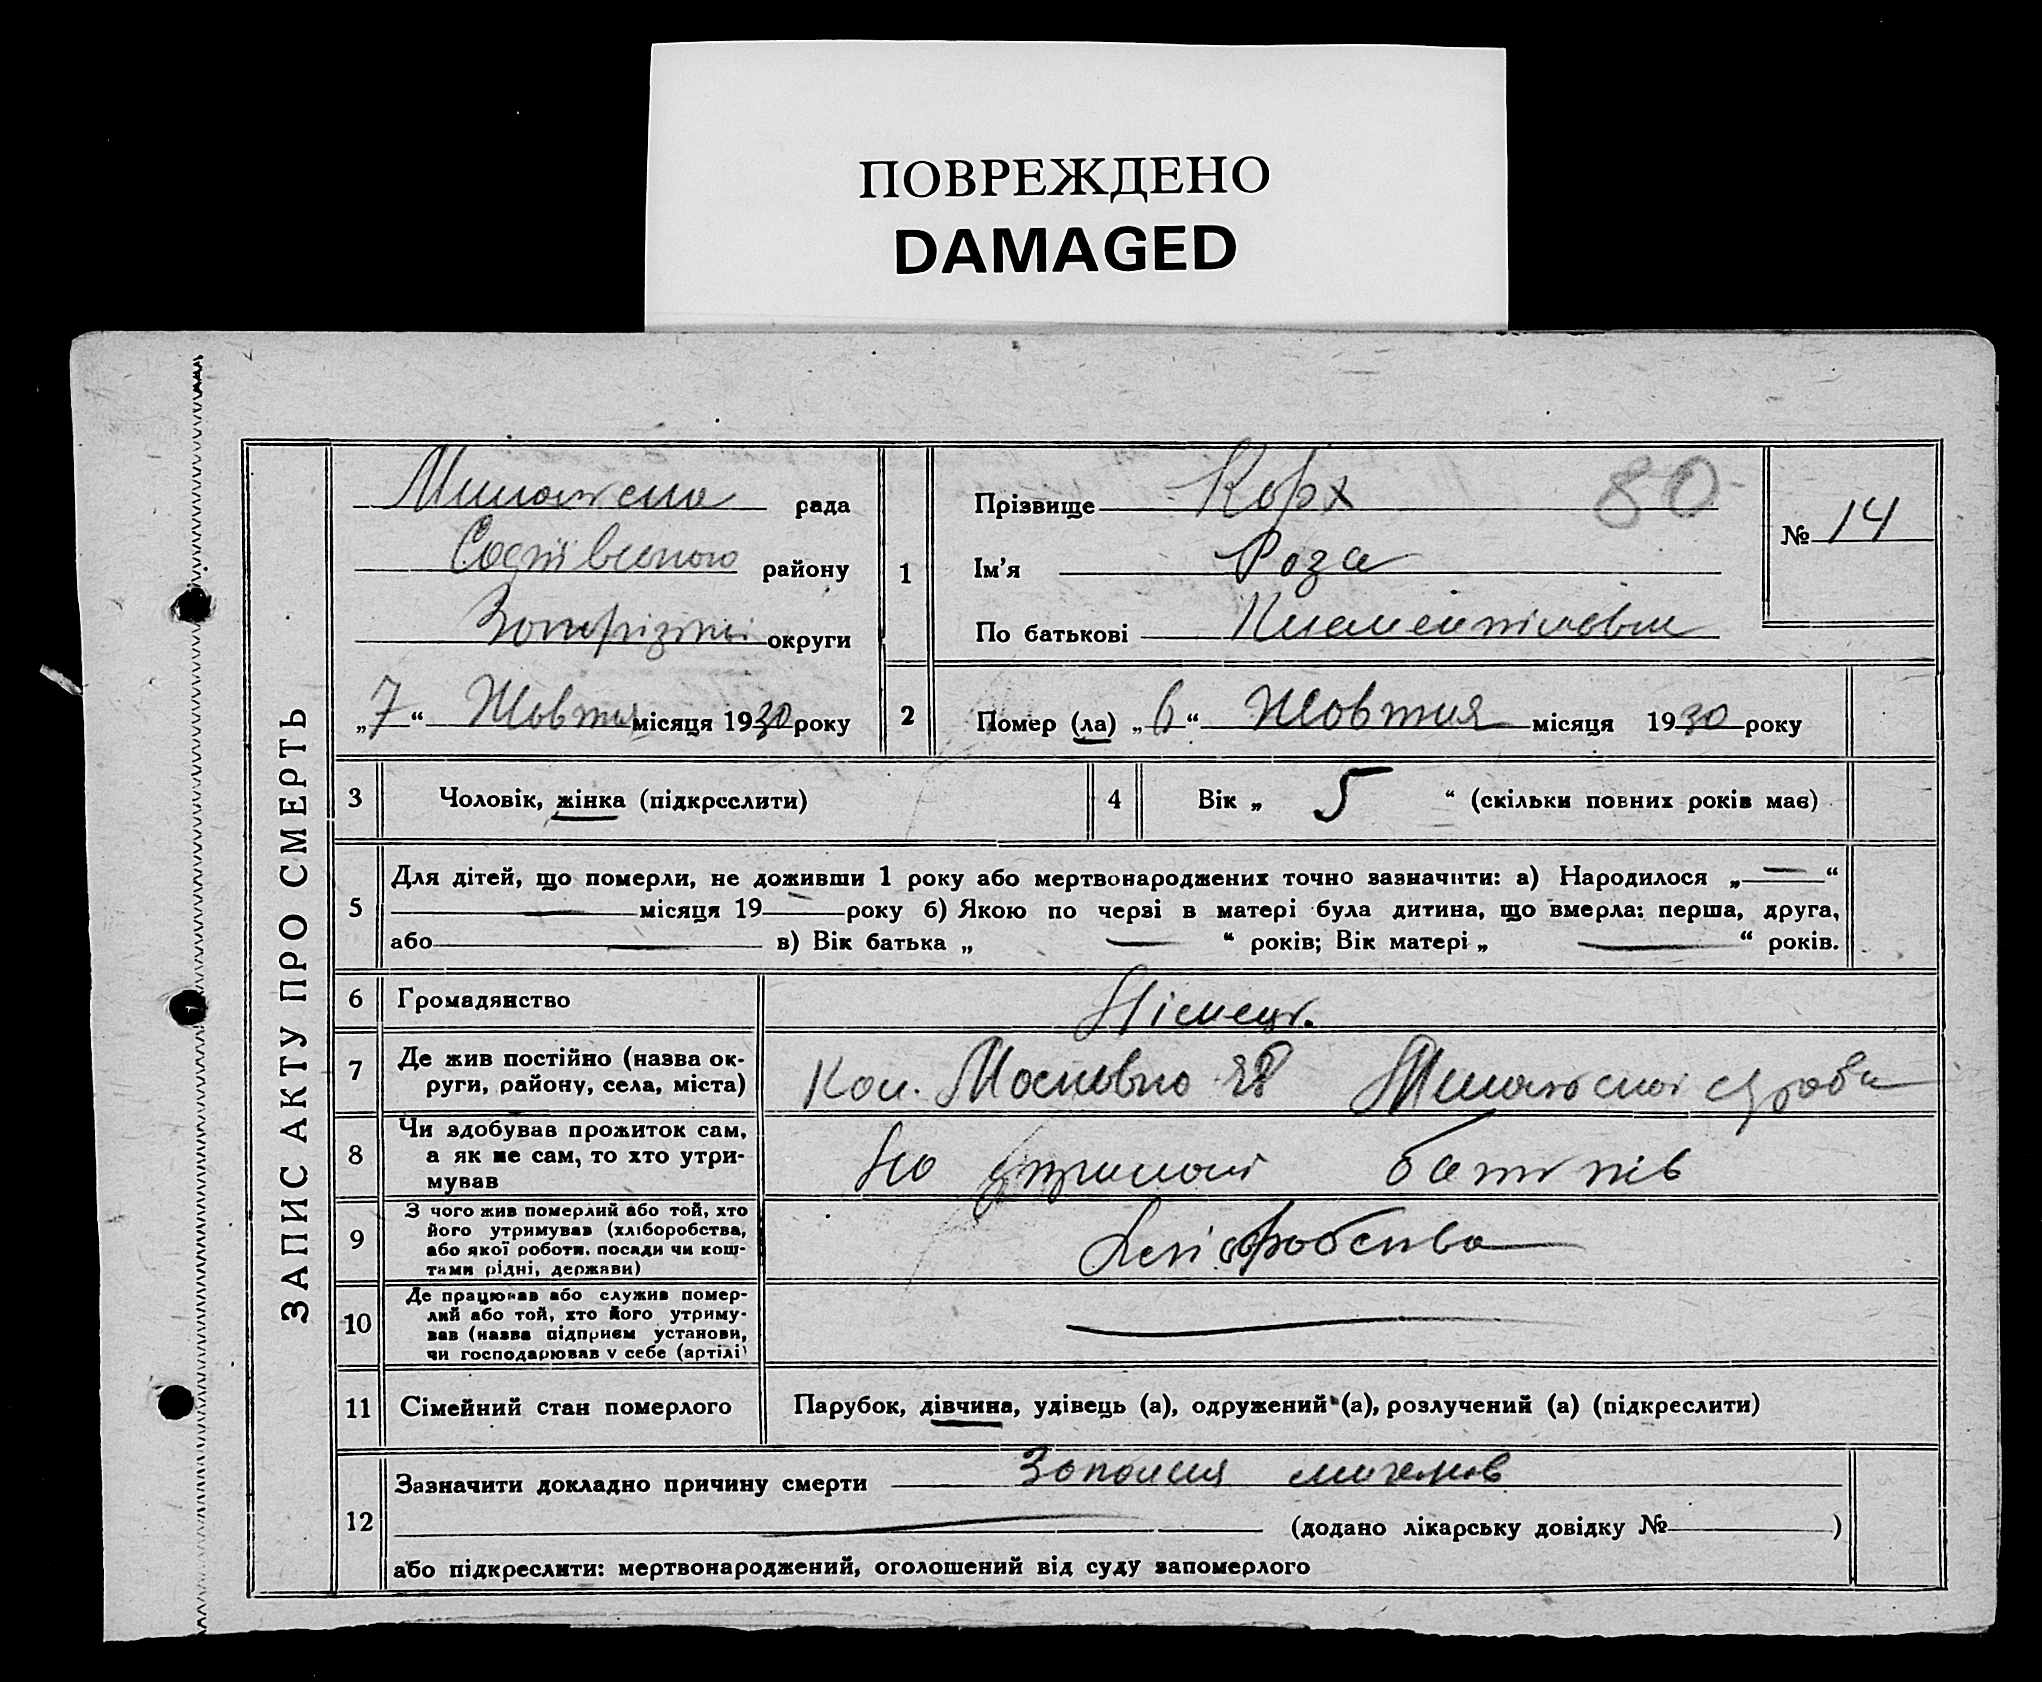 ПОВРЕЖДЕНО
DAMAGED
ЗАПИС АКТУ ПРО СМЕРТЬ
рада
району
округи
„7“ Жовтня місяця 1930 року
1
Прізвище Корх 80
Ім'я Роза
По батькові
№ 14
2
Помер (ла) „6“ Жовтня місяця 1930 року
3
Чоловік, жінка (підкреслити)
4
Вік „ 5 “ (скільки повних років має)
5
Для дітей, що померли, не доживши 1 року або мертвонароджених точно зазначити: а) Народилося „ — “
— місяця 19 — року б) Якою по черзі в матері була дитина, що вмерла: перша, друга,
або — в) Вік батька „ — “ років; Вік матері „ — “ років.
6
Громадянство
Німецьк.
7
Де жив постійно (назва ок-
руги, району, села, міста)
Кол.
8
Чи здобував прожиток сам,
а як не сам, то хто утри-
мував
На утриманні батьків
9
З чого жив померлий або той, хто
його утримував (хліборобства,
або якої роботи, посади чи кош-
тами рідні, держави)
10
Де працював або служив помер-
лий або той, хто його утриму-
вав (назва підприєм установи,
чи господарював у себе (артілі)
—
11
Сімейний стан померлого
Парубок, дівчина, удівець (а), одружений (а), розлучений (а) (підкреслити)
12
Зазначити докладно причину смерти
(додано лікарську довідку № )
або підкреслити: мертвонароджений, оголошений від суду запомерлого